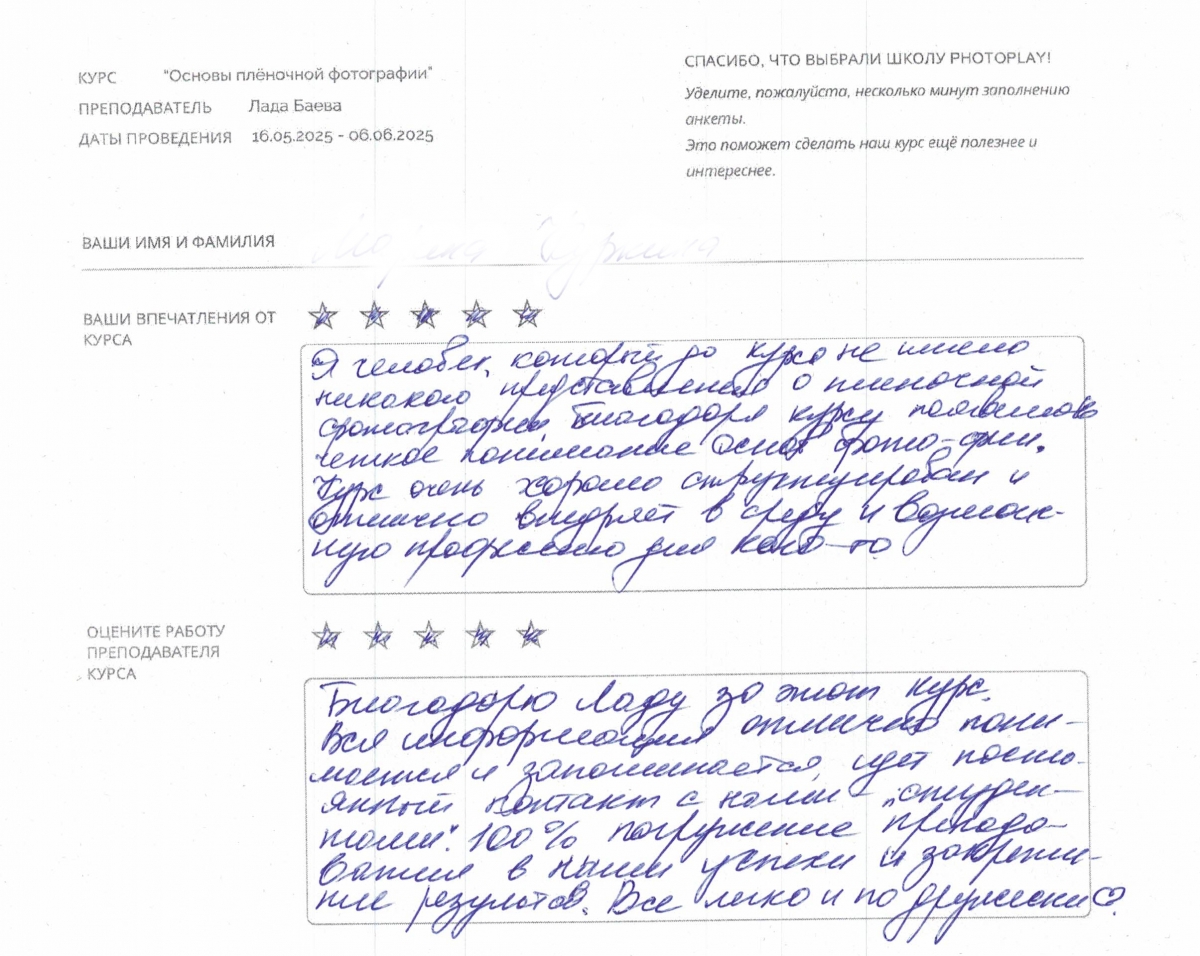 КУРС "Основы плёночной фотографии"
ПРЕПОДАВАТЕЛЬ Лада Баева
ДАТЫ ПРОВЕДЕНИЯ 16.05.2025 - 06.06.2025
СПАСИБО, ЧТО ВЫБРАЛИ ШКОЛУ PHOTOPLAY!
Уделите, пожалуйста, несколько минут заполнению
анкеты.
Это поможет сделать наш курс ещё полезнее и
интереснее.
ВАШИ ИМЯ И ФАМИЛИЯ
ВАШИ ВПЕЧАТЛЕНИЯ ОТ
КУРСА
Я человек, который до курса не имело
никакого представления о пленочной
фотографии. Благодаря курсу появилось
четкое понимание основ фото-фии.
Курс очень хорошо структуирован и
отлично внедряет в среду и возмож-
ную профессию для кого-то
ОЦЕНИТЕ РАБОТУ
ПРЕПОДАВАТЕЛЯ
КУРСА
Благодарю Ладу за этот курс.
Вся информация отлично пони-
мается и запоминается, идет посто-
янный контакт с нами - „студен-
тами". 100% погружение препода-
вателя в наши успехи и закрепле-
ние результатов. Все легко и по дружески